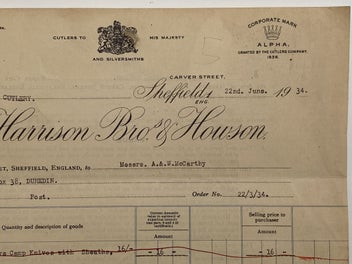 CUTLERS TO HIS MAJESTY
AND SILVERSMITHS
CORPORATE MARK
ALPHA.
GRANTED BY THE CUTLERS COMPANY.
1836.
CARVER STREET,
CUTLERY.
Sheffield, 22nd. June. 1934.
ENG.
Harrison Bros & Howson.
SHEFFIELD, ENGLAND, to Messrs. A.&.W.McCarthy
38, DUNEDIN.
Post. Order No. 22/3/34.
Quantity and description of goods
Selling price to
purchaser
Amount
Amount
Camp Knives with Sheaths, 16/- - 16 - - 16 -